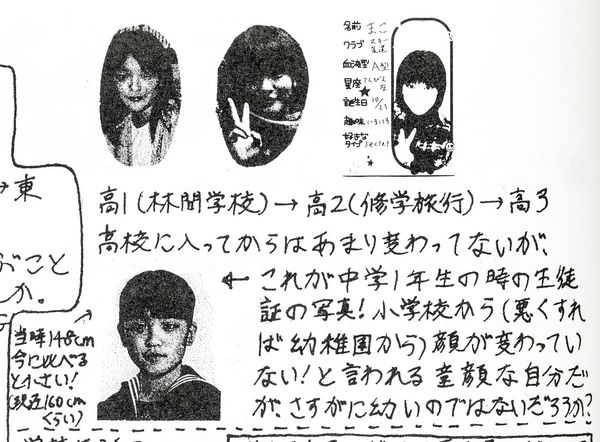 名前 まこ
クラブ スキー
友達
血液型 A型
星座 てんびん
座
誕生日 10/21
趣味 いろいろ
好きな
タイプ secret
高1(林間学校)→高2(修学旅行)→高3
高校に入ってからはあまり変わってないが、
←これが中学1年生の時の生徒
証の写真!小学校から(悪くすれ
ば幼稚園から)顔が変わってい
ない!と言われる童顔な自分だ
が、さすがに幼いのではないだろうか?
→東
こと
か。
当時148cm
今に比べる
と小さい!
(現在160cm
くらい)